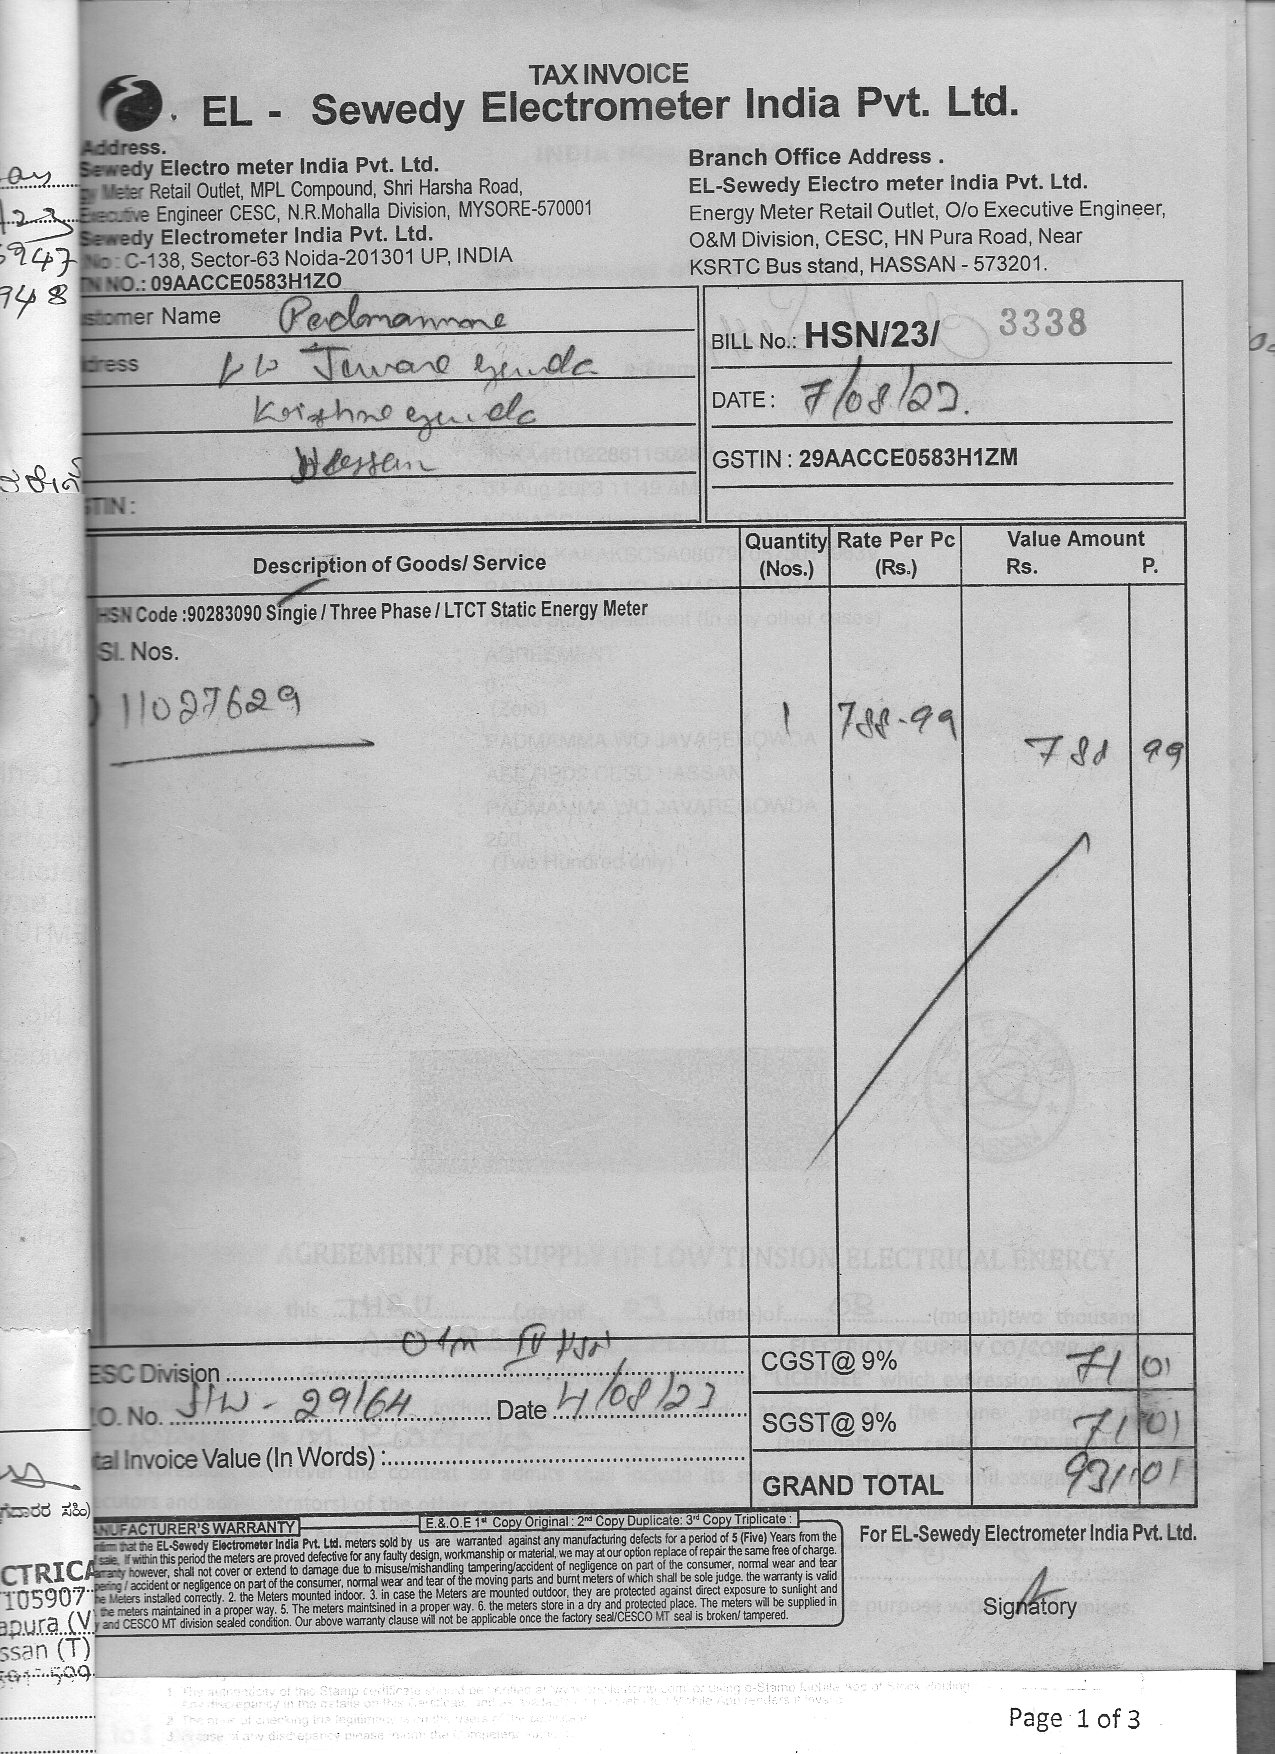 TAX INVOICE
EL - Sewedy Electrometer India Pvt. Ltd.
Address.
Sewedy Electro meter India Pvt. Ltd.
Meter Retail Outlet, MPL Compound, Shri Harsha Road,
Executive Engineer CESC, N.R.Mohalla Division, MYSORE-570001
Sewedy Electrometer India Pvt. Ltd.
No : C-138, Sector-63 Noida-201301 UP, INDIA
NO.: 09AACCE0583H1ZO
Branch Office Address .
EL-Sewedy Electro meter India Pvt. Ltd.
Energy Meter Retail Outlet, O/o Executive Engineer,
O&M Division, CESC, HN Pura Road, Near
KSRTC Bus stand, HASSAN - 573201.
stomer Name Padmamma
dress
Krishnegowda
Hassan
STIN :
BILL No.: HSN/23/ 3338
DATE : 7/08/23.
GSTIN : 29AACCE0583H1ZM
Description of Goods/ Service Quantity (Nos.) Rate Per Pc (Rs.) Value Amount Rs. P.
HSN Code :90283090 Singie / Three Phase / LTCT Static Energy Meter
Sl. Nos.
11027629 1 788-99 788 99
ESC Division
O. No. 29164 Date 4/08/23
tal Invoice Value (In Words) :
CGST@ 9% 71 01
SGST@ 9% 71 01
GRAND TOTAL 931 01
E.& O.E 1st Copy Original : 2nd Copy Duplicate: 3rd Copy Triplicate :
NUFACTURER'S WARRANTY
that the EL-Sewedy Electrometer India Pvt. Ltd. meters sold by us are warranted against any manufacturing defects for a period of 5 (Five) Years from the
sale. If within this period the meters are proved defective for any faulty design, workmanship or material, we may at our option replace of repair the same free of charge.
however, shall not cover or extend to damage due to misuse/mishandling tampering/accident of negligence on part of the consumer, normal wear and tear
/ accident or negligence on part of the consumer, normal wear and tear of the moving parts and burnt meters of which shall be sole judge. the warranty is valid
Meters installed correctly. 2. the Meters mounted indoor. 3. in case the Meters are mounted outdoor, they are protected against direct exposure to sunlight and
the meters maintained in a proper way. 5. The meters maintsined in a proper way. 6. the meters store in a dry and protected place. The meters will be supplied in
and CESCO MT division sealed condition. Our above warranty clause will not be applicable once the factory seal/CESCO MT seal is broken/ tampered.
For EL-Sewedy Electrometer India Pvt. Ltd.
Signatory
CTRICA
105907
apura (V
ssan (T)
Page 1 of 3